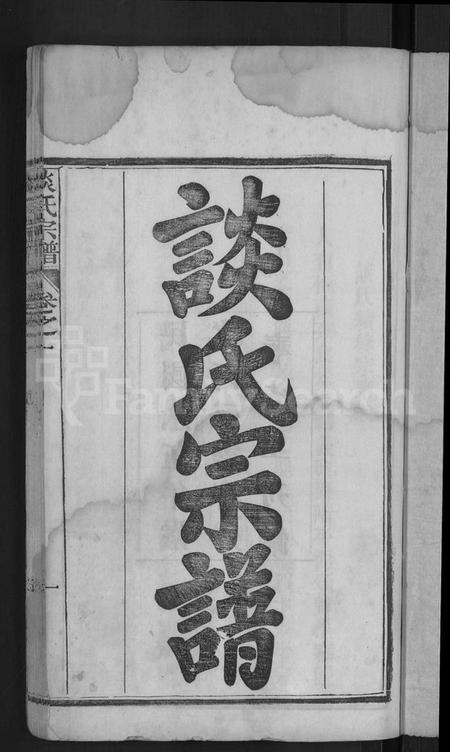 談氏宗譜
談氏宗譜
卷之一
一
FamilySearch